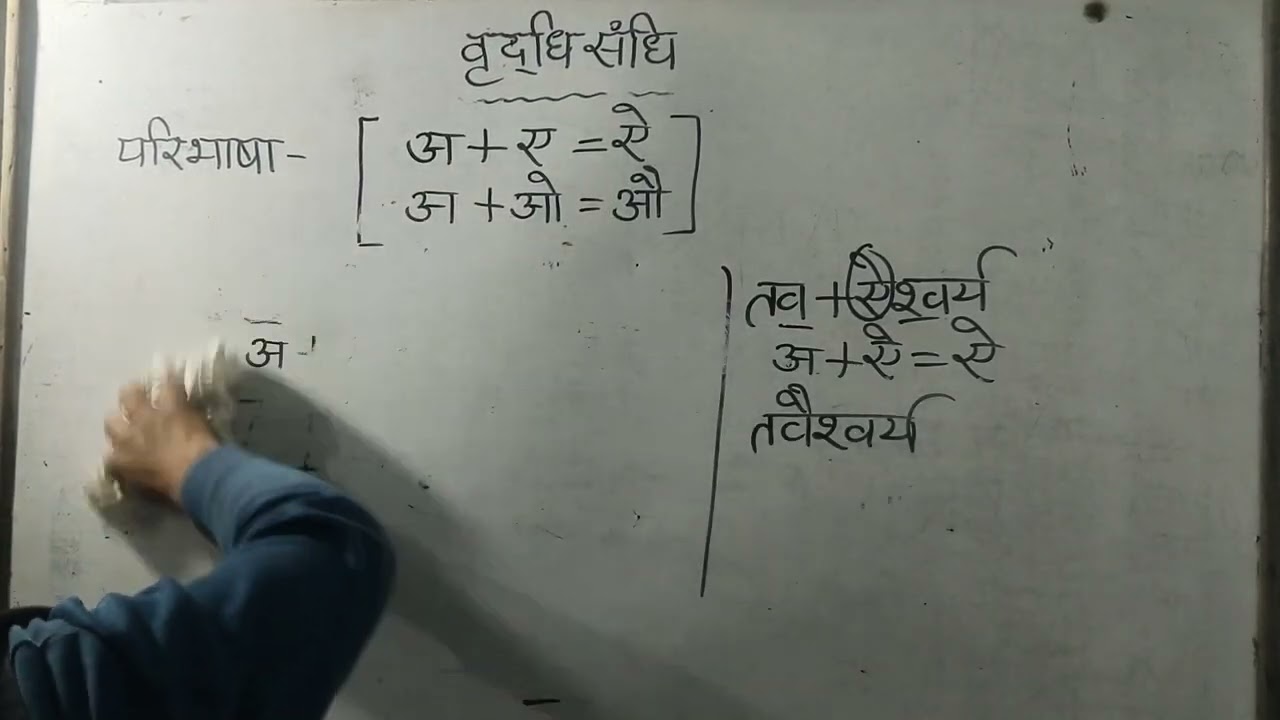 वृद्धि संधि
परिभाषा - [ अ + ए = ऐ
अ + ओ = औ ]
तव + ऐश्वर्य
अ + ऐ = ऐ
तवैश्वर्य
अ -